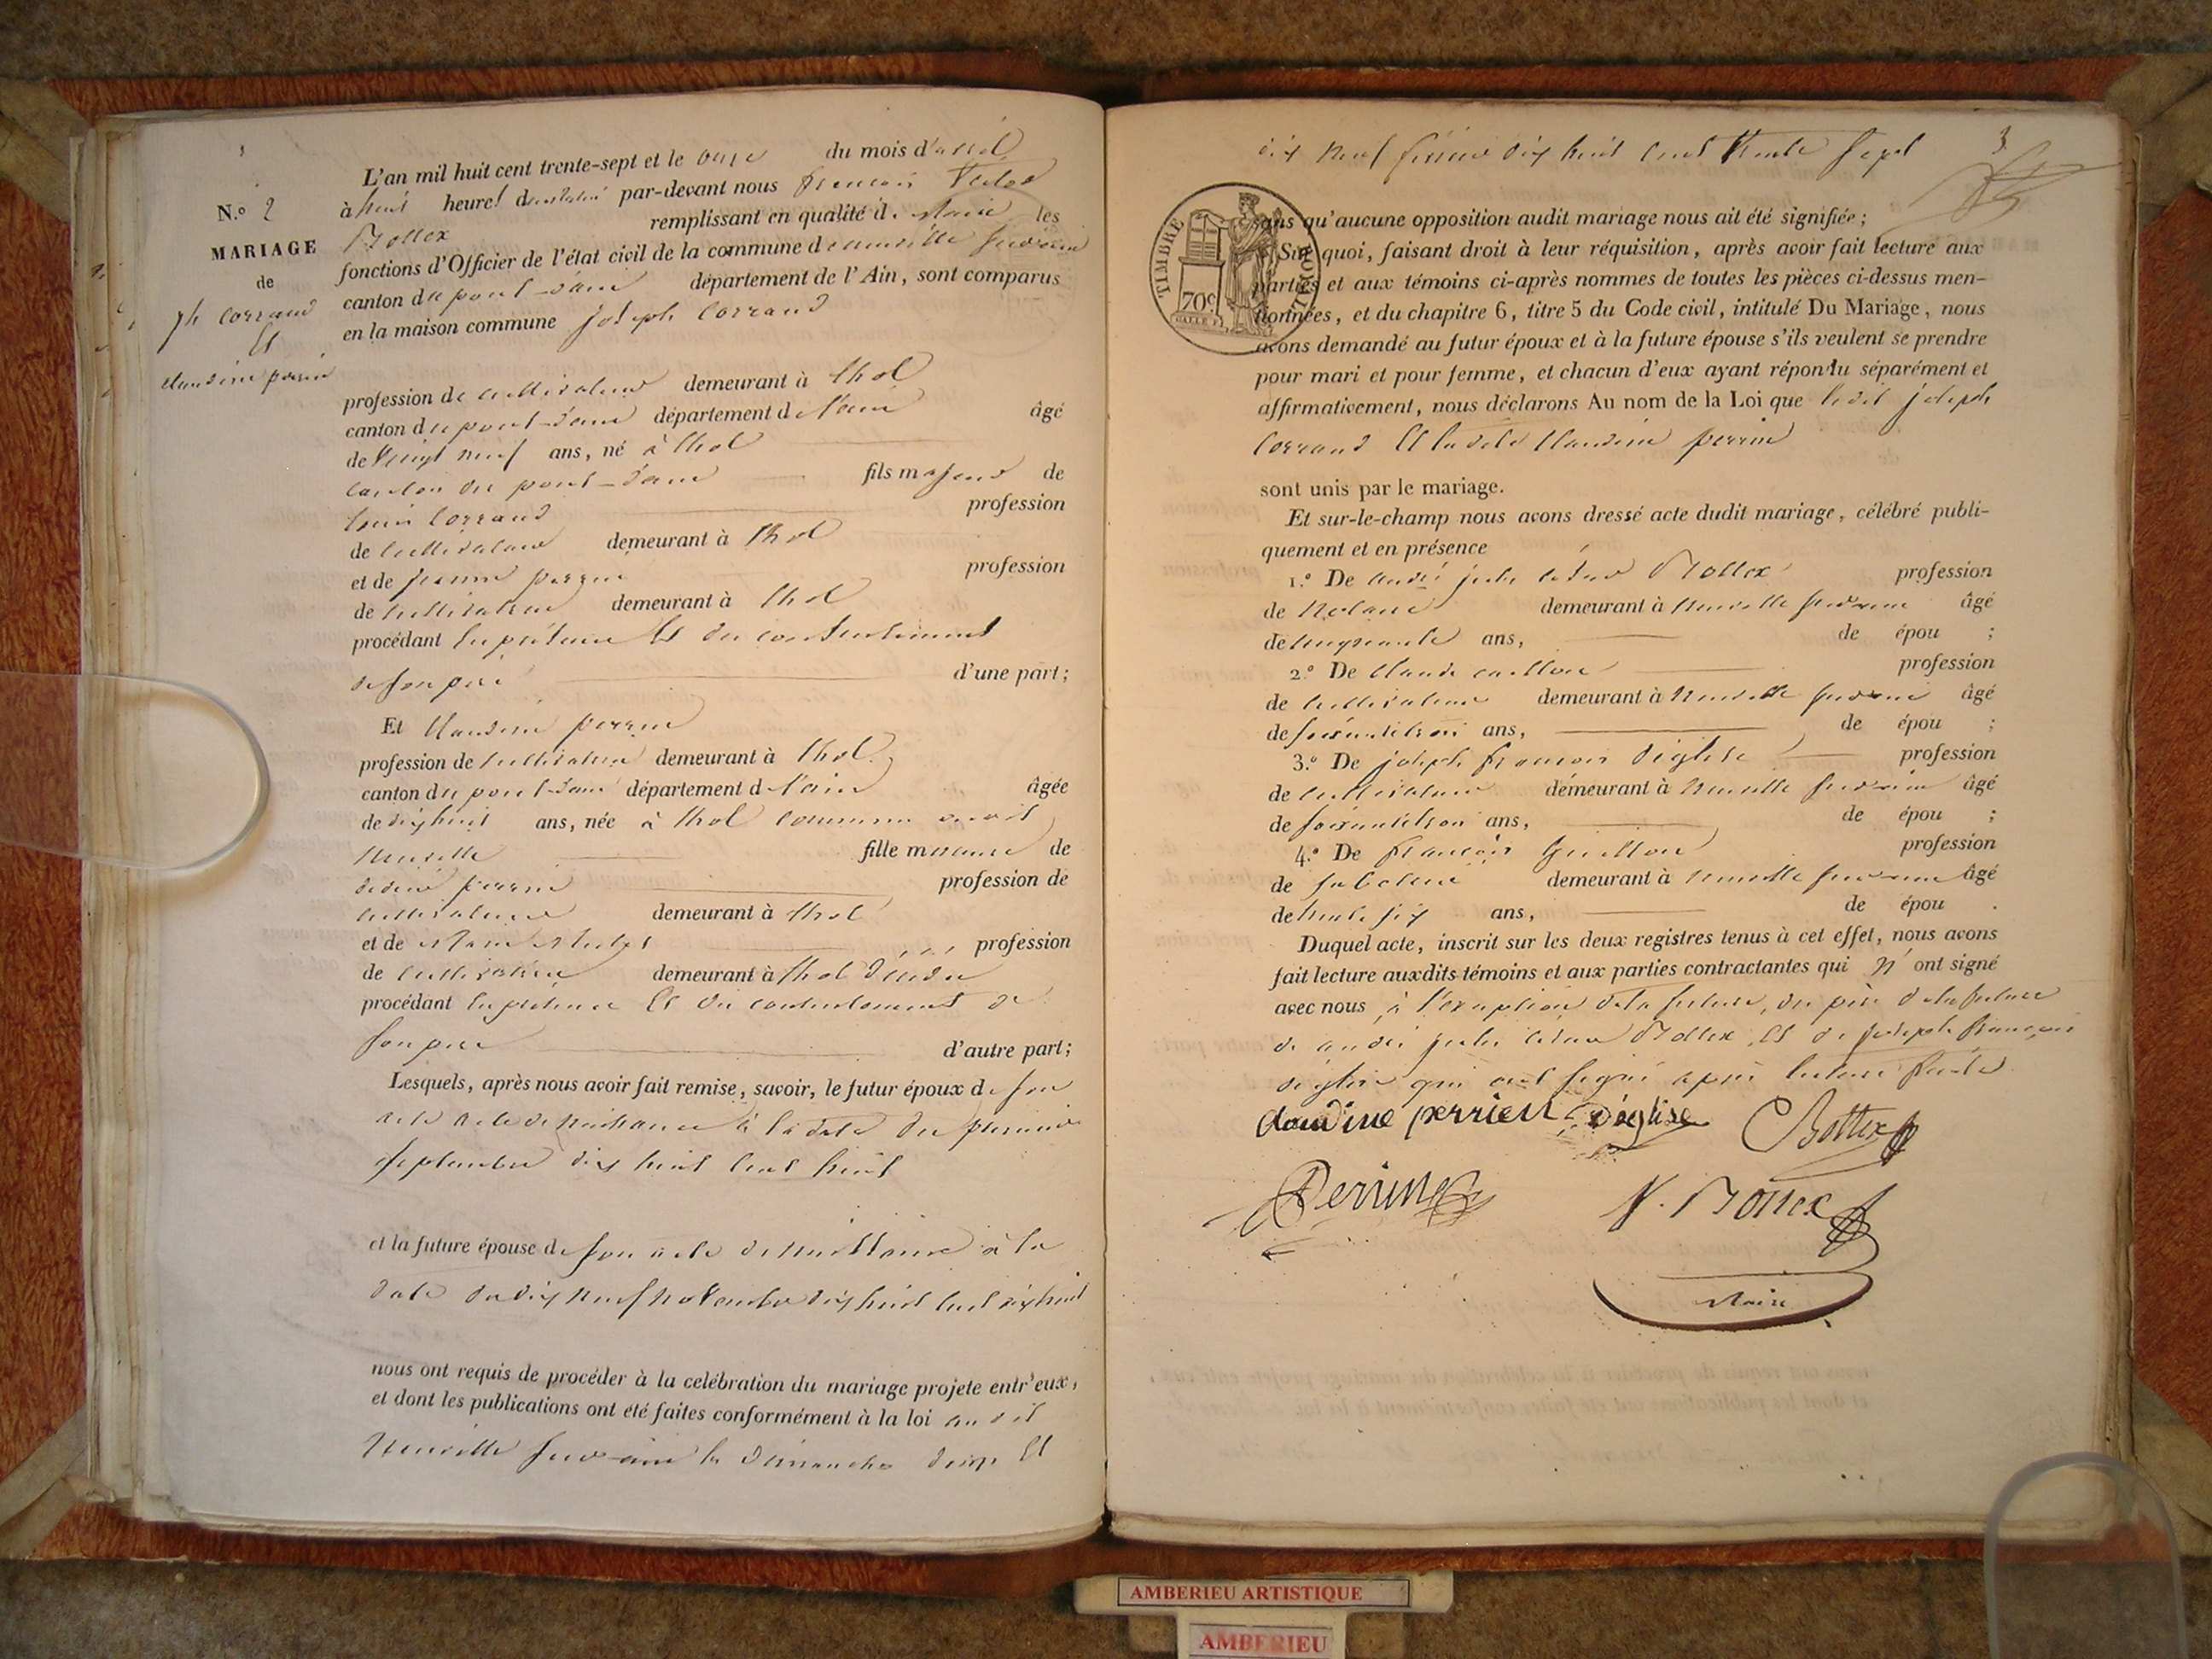 N.o 2
MARIAGE
de
jh Corrand
Et
Claudine perrin
L'an mil huit cent trente-sept et le onze du mois d'avril
à huit heures du matin par-devant nous françois Victor
Bottex remplissant en qualité de Maire les
fonctions d'Officier de l'état civil de la commune de neuville sur ain
canton du pont-d'ain département de l'Ain, sont comparus
en la maison commune joseph Corrand
profession de cultivateur demeurant à thol
canton du pont-d'ain département de l'ain âgé
de Vingt neuf ans, né à thol
canton du pont-d'ain fils majeur de
louis Corrand profession
de cultivateur demeurant à thol
et de jeanne profession
de cultivatrice demeurant à thol
procédant en présence Et du consentement
de son père d'une part;
Et Claudine perrin
profession de cultivatrice demeurant à thol
canton du pont-d'ain département de l'ain âgée
de dix huit ans, née à thol commune dudit
Neuville fille mineure de
perrin profession de
cultivateur demeurant à thol
et de Marie profession
de cultivatrice demeurant à thol
procédant en présence Et du consentement de
son père d'autre part;
Lesquels, après nous avoir fait remise, savoir, le futur époux de son
acte de naissance à la date du premier
septembre dix huit cent huit
et la future épouse de son acte de naissance à la
date du dix neuf novembre dix huit cent dix huit
nous ont requis de procéder à la celébration du mariage projete entr'eux,
et dont les publications ont été faites conformément à la loi audit
Neuville sur-ain les dimanches douze Et
dix neuf février dix huit cent trente sept
3
TIMBRE ROYAL
70c
sans qu'aucune opposition audit mariage nous ait été signifiée;
Sur quoi, faisant droit à leur réquisition, après avoir fait lecture aux
parties et aux témoins ci-après nommes de toutes les pièces ci-dessus men-
tionnées, et du chapitre 6, titre 5 du Code civil, intitulé Du Mariage, nous
avons demandé au futur époux et à la future épouse s'ils veulent se prendre
pour mari et pour femme, et chacun d'eux ayant répondu séparément et
affirmativement, nous déclarons Au nom de la Loi que ledit joseph
Corrand Et la dite Claudine perrin
sont unis par le mariage.
Et sur-le-champ nous avons dressé acte dudit mariage, célébré publi-
quement et en présence
1.o De andré jules César Bottex profession
de Notaire demeurant à Neuville sur ain âgé
de cinquante ans, de épou ;
2.o De Claude profession
de cultivateur demeurant à Neuville sur ain âgé
de soixante trois ans, de épou ;
3.o De joseph françois déglise profession
de cultivateur demeurant à Neuville sur ain âgé
de soixante trois ans, de épou ;
4.o De françois Guillon profession
de sabotier demeurant à neuville sur ain âgé
de trente six ans, de épou .
Duquel acte, inscrit sur les deux registres tenus à cet effet, nous avons
fait lecture auxdits témoins et aux parties contractantes qui n'ont signé
avec nous, à l'exception de la future, du père de la future
de andré jules César Bottex, Et de joseph françois
déglise qui ont signé après lecture faite
claudine perrien déglise Bottex
Perrin V. Bottex
Maire
AMBERIEU ARTISTIQUE
AMBERIEU